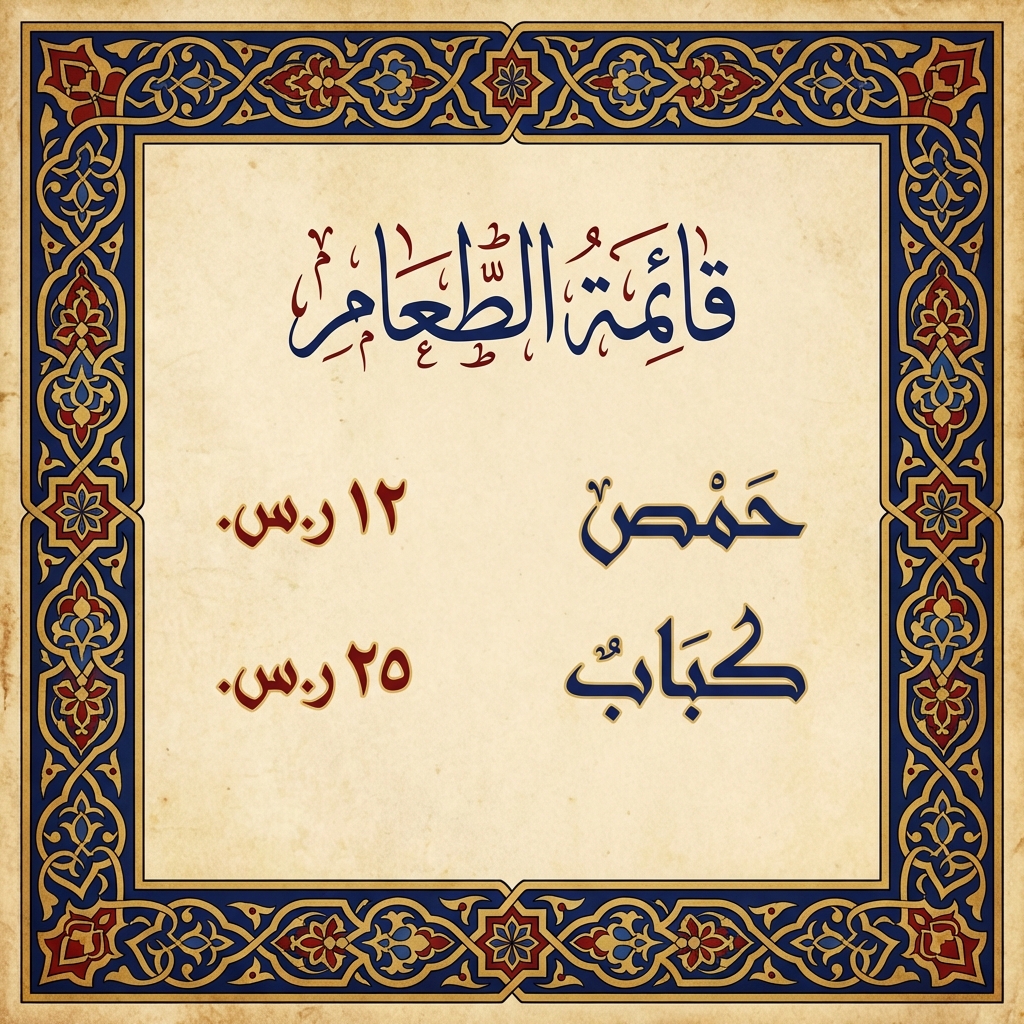 قَائِمَةُ الطَّعَامِ
حَمْص ١٢ ر.س.
كَبَابٌ ٢٥ ر.س.